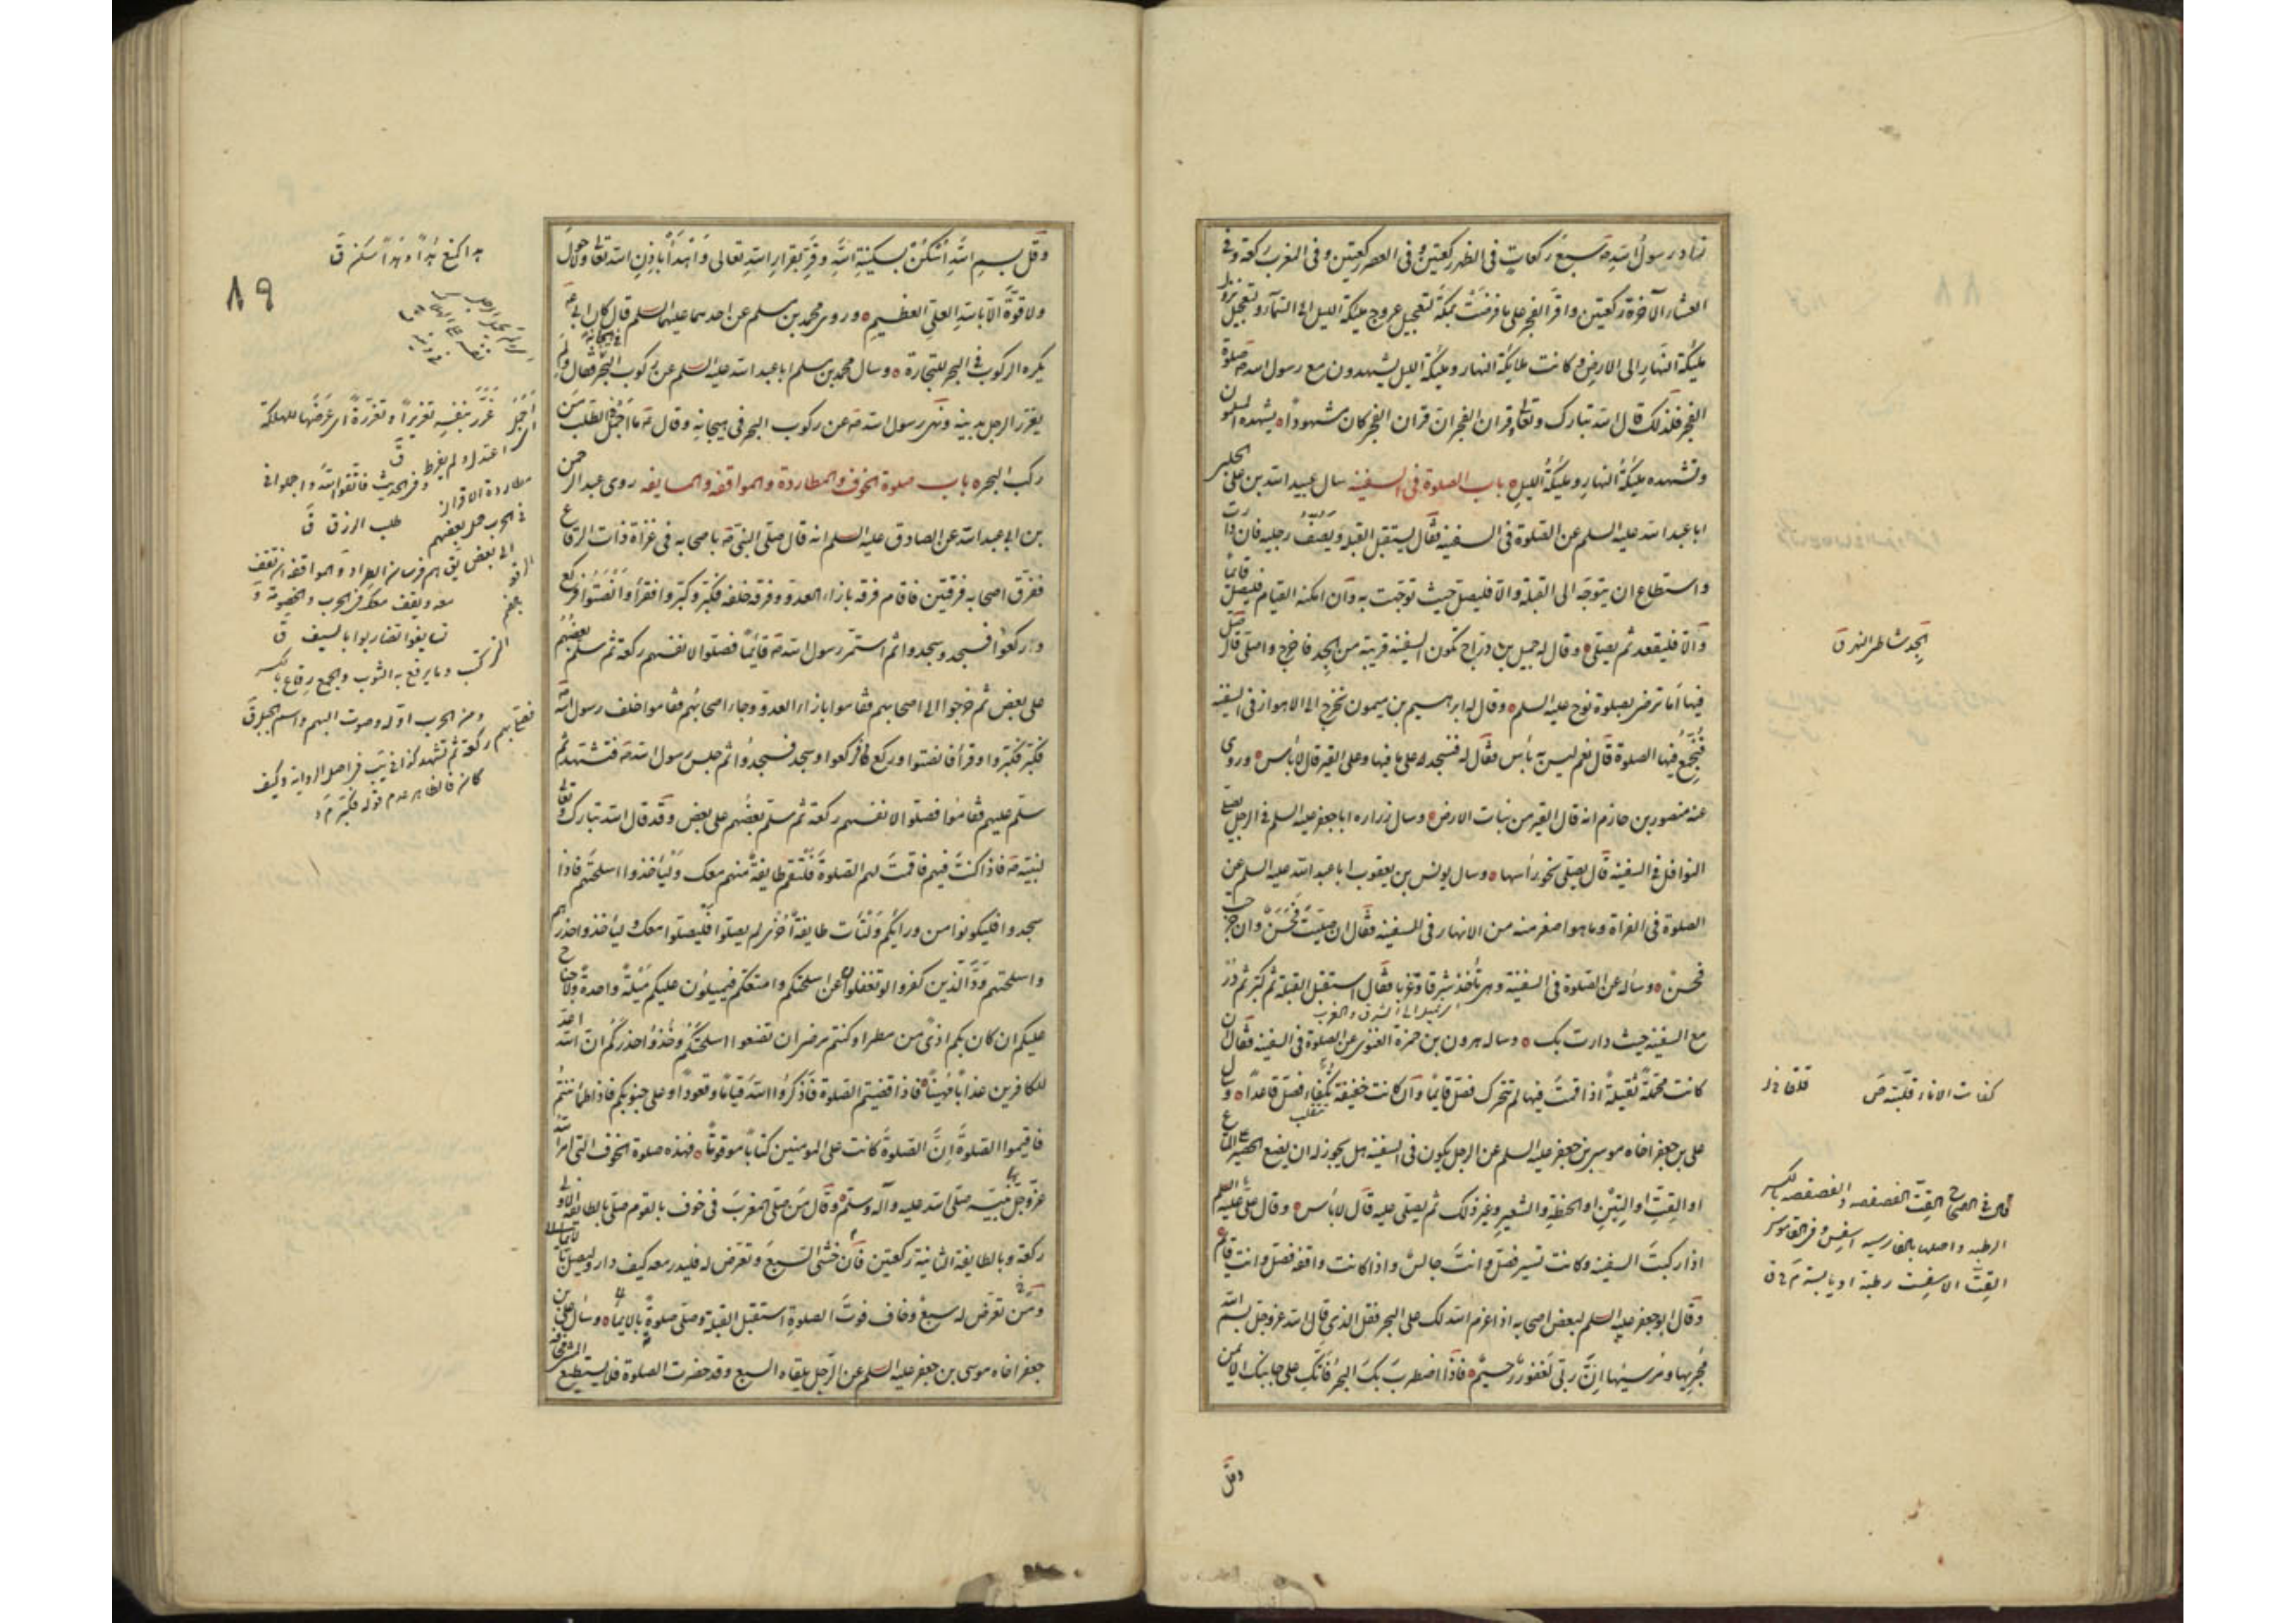 زاد رسول الله صه سبع ركعات في الظهر ركعتين وفي العصر ركعتين وفي المغرب ركعة وفي
العشاء الآخرة ركعتين واقرّ الفجر على ما فرضت بمكة لتعجيل عروج مليكة الليل الى السماء ولتعجيل نزول
مليكة النهار الى الارض وكانت ملايكة النهار ومليكة الليل يشهدون مع رسول الله صه صلوة
الفجر فلذلك قال الله تبارك وتعالى وقران الفجر ان قران الفجر كان مشهودا يشهده المسلمون
وتشهده مليكة النهار ومليكة الليل باب الصلوة في السفينه سال عبيد الله بن علي الحلبي
ابا عبد الله عليه السلم عن الصلوة في السفينه فقال يستقبل القبلة ويصف رجليه فان دارت
واستطاع ان يتوجه الى القبلة والا فليصل حيث توجهت به وان امكنه القيام فليصل قائما
والا فليقعد ثم يصلي وقال له جميل بن دراج تكون السفينه قريبة من الجد فاخرج واصلي قال صل
فيها اما ترضى بصلوة نوح عليه السلم وقال له ابرهيم بن ميمون نخرج الى الاهواز في السفينه
فنجمع فيها الصلوة قال نعم ليس به بأس فقال له فنسجد على ما فيها وعلى القير قال لا بأس وروى
عنه منصور بن حازم انه قال القير من نبات الارض وسال زراره ابا جعفر عليه السلم في الرجل يصلي
النوافل في السفينه قال يصلي نحو رأسها وسال يونس بن يعقوب ابا عبد الله عليه السلم عن
الصلوة في الفراة وما هو اصغر منه من الانهار في السفينه فقال ان صليت فحسن وان خرجت
فحسن وساله عن الصلوة في السفينة وهي تأخذ شرقا وغربا فقال استقبل القبلة ثم كبر ثم در
مع السفينه حيث دارت بك وساله هرون بن حمزة الغنوي عن الصلوة في السفينه فقال ان
كانت محملة ثقيلة اذا قمت فيها لم تتحرك فصل قائما وان كانت خفيفة تكفا فصل قاعدا وسال
علي بن جعفر اخاه موسى بن جعفر عليه السلم عن الرجل يكون في السفينه هل يجوز له ان يضع الحصير على المتاع
او القت او التبن او الحنطة والشعير وغير ذلك ثم يصلي عليه قال لا بأس وقال علي عليه السلم
اذا ركبت السفينه وكانت تسير فصل وانت جالس واذا كانت واقفه فصل وانت قائم
وقال ابو جعفر عليه السلم لبعض اصحابه اذا عزم الله لك على البحر فقل الذي قال الله عز وجل بسم الله
مجريها ومرسيها ان ربي لغفور رحيم فاذا اضطرب بك البحر فاتك على جانبك الايمن
وقل
الجد شاطئ النهر ق
كفات الاناء قلبته ص
قال في الصحاح القت الفصفصه والفصفصه بالكسر
الرطبه واصلها بالفارسيه اسفست وفي القاموس
القت الاسفست رطبة او يابسة م ح ق
وقل بسم الله اسكن بسكينة الله وقر بقرار الله تعالى واهدأ باذن الله تعالى ولا حول
ولا قوة الا بالله العلي العظيم وروى محمد بن مسلم عن احدهما عليهما السلم قال كان ابي عه
يكره الركوب في البحر للتجارة وسال محمد بن مسلم ابا عبد الله عليه السلم عن ركوب البحر في هيجانه فقال ولم
يغرر الرجل بدينه ونهى رسول الله صه عن ركوب البحر في هيجانه وقال صه ما اجمل في الطلب من
ركب البحر باب صلوة الخوف والمطاردة والمواقفه والمسايفه روى عبد الرحمن
بن ابي عبد الله عن الصادق عليه السلم انه قال صلى النبي صه باصحابه في غزاة ذات الرقاع
ففرق اصحابه فرقتين فاقام فرقة بازاء العدو وفرقة خلفه فكبر وكبروا فقرأ وانصتوا فركع
وركعوا فسجد وسجدوا ثم استمر رسول الله صه قائما فصلوا لانفسهم ركعة ثم سلم بعضهم
على بعض ثم خرجوا الى اصحابهم فقاموا بازاء العدو وجاء اصحابهم فقاموا خلف رسول الله صه
فكبر فكبروا وقرأ فانصتوا وركع فركعوا وسجد فسجدوا ثم جلس رسول الله صه فتشهد ثم
سلم عليهم فقاموا فصلوا لانفسهم ركعة ثم سلم بعضهم على بعض وقد قال الله تبارك وتعالى
لنبيه صه فاذا كنت فيهم فاقمت لهم الصلوة فلتقم طايفة منهم معك وليأخذوا اسلحتهم فاذا
سجدوا فليكونوا من ورائكم ولتأت طايفة اخرى لم يصلوا فليصلوا معك وليأخذوا حذرهم
واسلحتهم ود الذين كفروا لو تغفلون عن اسلحتكم وامتعتكم فيميلون عليكم ميلة واحدة ولا جناح
عليكم ان كان بكم اذى من مطر او كنتم مرضى ان تضعوا اسلحتكم وخذوا حذركم ان الله اعد
للكافرين عذابا مهينا فاذا قضيتم الصلوة فاذكروا الله قياما وقعودا وعلى جنوبكم فاذا اطمأننتم
فاقيموا الصلوة ان الصلوة كانت على المومنين كتابا موقوتا فهذه صلوة الخوف التي امر الله
عز وجل بها نبيه صلى الله عليه وآله وسلم وقال من صلى المغرب في خوف بالقوم صلى بالطايفة الاولى
ركعة وبالطايفة الثانية ركعتين فان خشي السبع وتعرض له فليدر معه كيف دار وليصل بالايماء
ومن تعرض له سبع وخاف فوت الصلوة استقبل القبلة وصلى صلوة بالايماء وسأل علي بن
جعفر اخاه موسى بن جعفر عليه السلم عن الرجل يلقاه السبع وقد حضرت الصلوة فلا يستطيع المشي مخافة
هدا كمنع هدءا وهدوءا سكن ق
٨٩
غرر بنفسه تغريرا وتغرة اي عرضها للهلكة
اي اعتدل ولم يفرط وفي الحديث فاتقوا الله واجملوا في
طلب الرزق ق
مطاردة الاقران
في الحرب حمل بعضهم
معه ويقف معك في الحرب والخصومة
تسايفوا تضاربوا بالسيف ق
وما يرقع به الثوب والجمع رقاع بالكسر